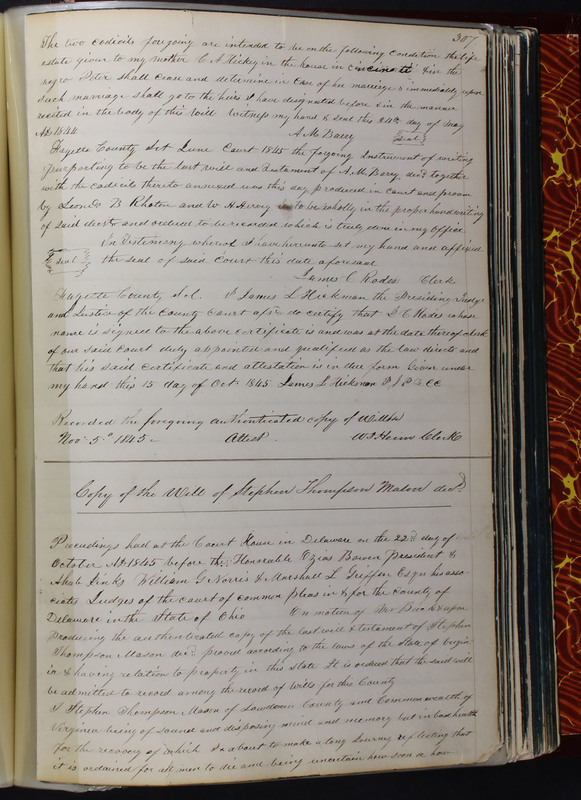 307
The two codicils foregoing are intended to be on the following condition the life
estate given to my mother C A Hickey in the house in Cincinatti & in the
negro Peter shall cease and determine in case of her marriage & immediately upon
such marriage shall go to the heirs I have designated before & in the manner
recited in the body of this Will Witness my hand & seal this 24th day of May
AD 1844 A M Barry seal
Fayette County Sct June Court 1845 the forgoing Instrument of writing
purporting to be the last will and testament of A. M Barry, decd together
with the codicils thereto annexed was this day produced in Court and proven
by Leond B Khoton and W H Hervy to be wholly in the proper handwriting
of said decd and ordered to be recorded which is truly done in my Office
In Testimony whereof I have hereunto set my hand and affixed
seal the seal of said Court this date aforesaid
James C Rodes Clerk
Fayette County Scl. I James L Hickman the Presiding Judge
and Justice of the County Court afsd do certify that J C Rodes whose
name is signed to the above certificate is and was at the date thereof clerk
of our said Court duly appointed and qualified as the law directs and
that his said certificate and attestation is in due form Given under
my hand this 15 day of Oct 1845 James L Hickman P J P F CC
Recorded the foregoing authenticated copy of Will
Nov 5th 1845 Attest Clerk
Copy of the Will of Stephen Thompson Mason decd
Proceedings had at the Court House in Delaware on the 22d day of
October AD 1845 before the Honorable Ozias Bowen President &
Ahab Jinks William G Norris & Marshall L Griffin Esqrs his asso-
ciates Judges of the court of common pleas in & for the county of
Delaware in the State of Ohio On motion of Mr Brooks upon
producing the authenticated copy of the last will & testament of Stephen
Thompson Mason decd proved according to the laws of the State of Virgin-
ia & having relation to property in this state It is ordered that the said will
be admitted to record among the record of wills for this County
I Stephen Thompson Mason of Lowdown County and Commonwealth of
Virginia being of sound and disposing mind and memory but in bad health
for the recovery of which I am about to make a long Journey reflecting that
it is ordained for all men to die and being uncertain how soon or how